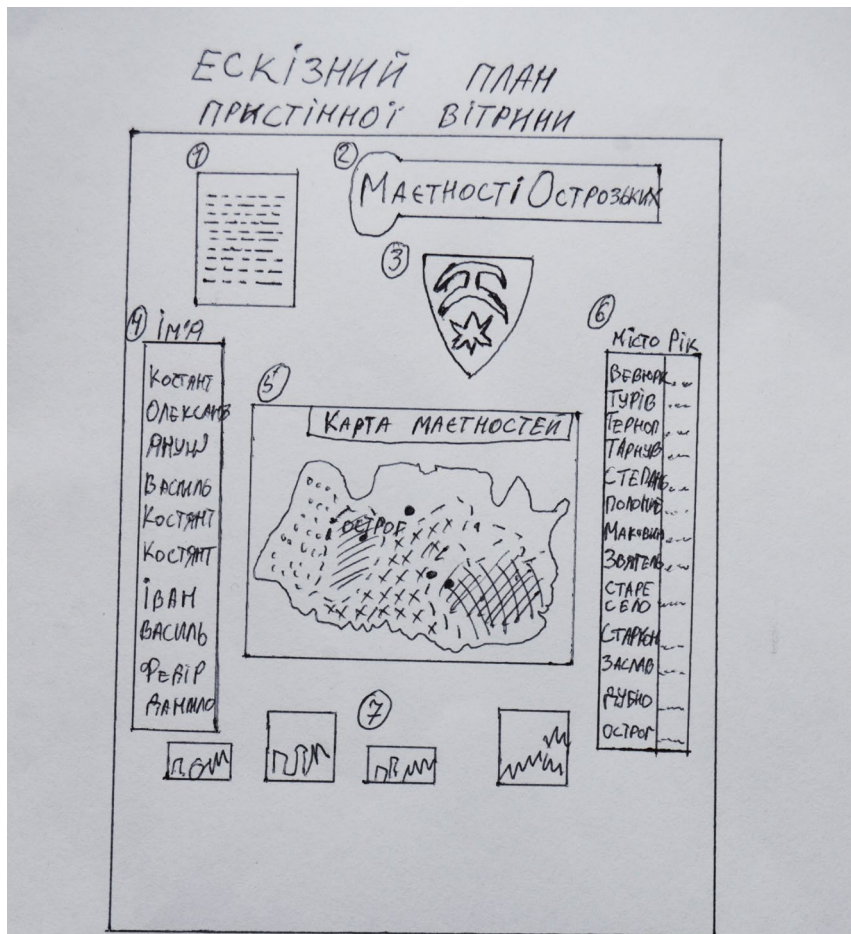 ЕСКІЗНИЙ ПЛАН
ПРИСТІННОЇ ВІТРИНИ
1
2
МАЄТНОСТІ ОСТРОЗЬКИХ
3
4 ІМ'Я
КОСТЯНТ
ОЛЕКСАНВ
ЯНУШ
ВАСИЛЬ
КОСТЯНТ
КОСТЯНТ
ІВАН
ВАСИЛЬ
ФЕДІР
ДАНИЛО
5
КАРТА МАЄТНОСТЕЙ
ОСТРОГ
6
МІСТО РІК
ТУРІВ
ТЕРНОП
ТАРНУВ
СТЕПАНЬ
ПОЛОННЕ
ЗВЯГЕЛЬ
СТАРЕ
СЕЛО
СТАРКОН
ЗАСЛАВ
ДУБНО
ОСТРОГ
7